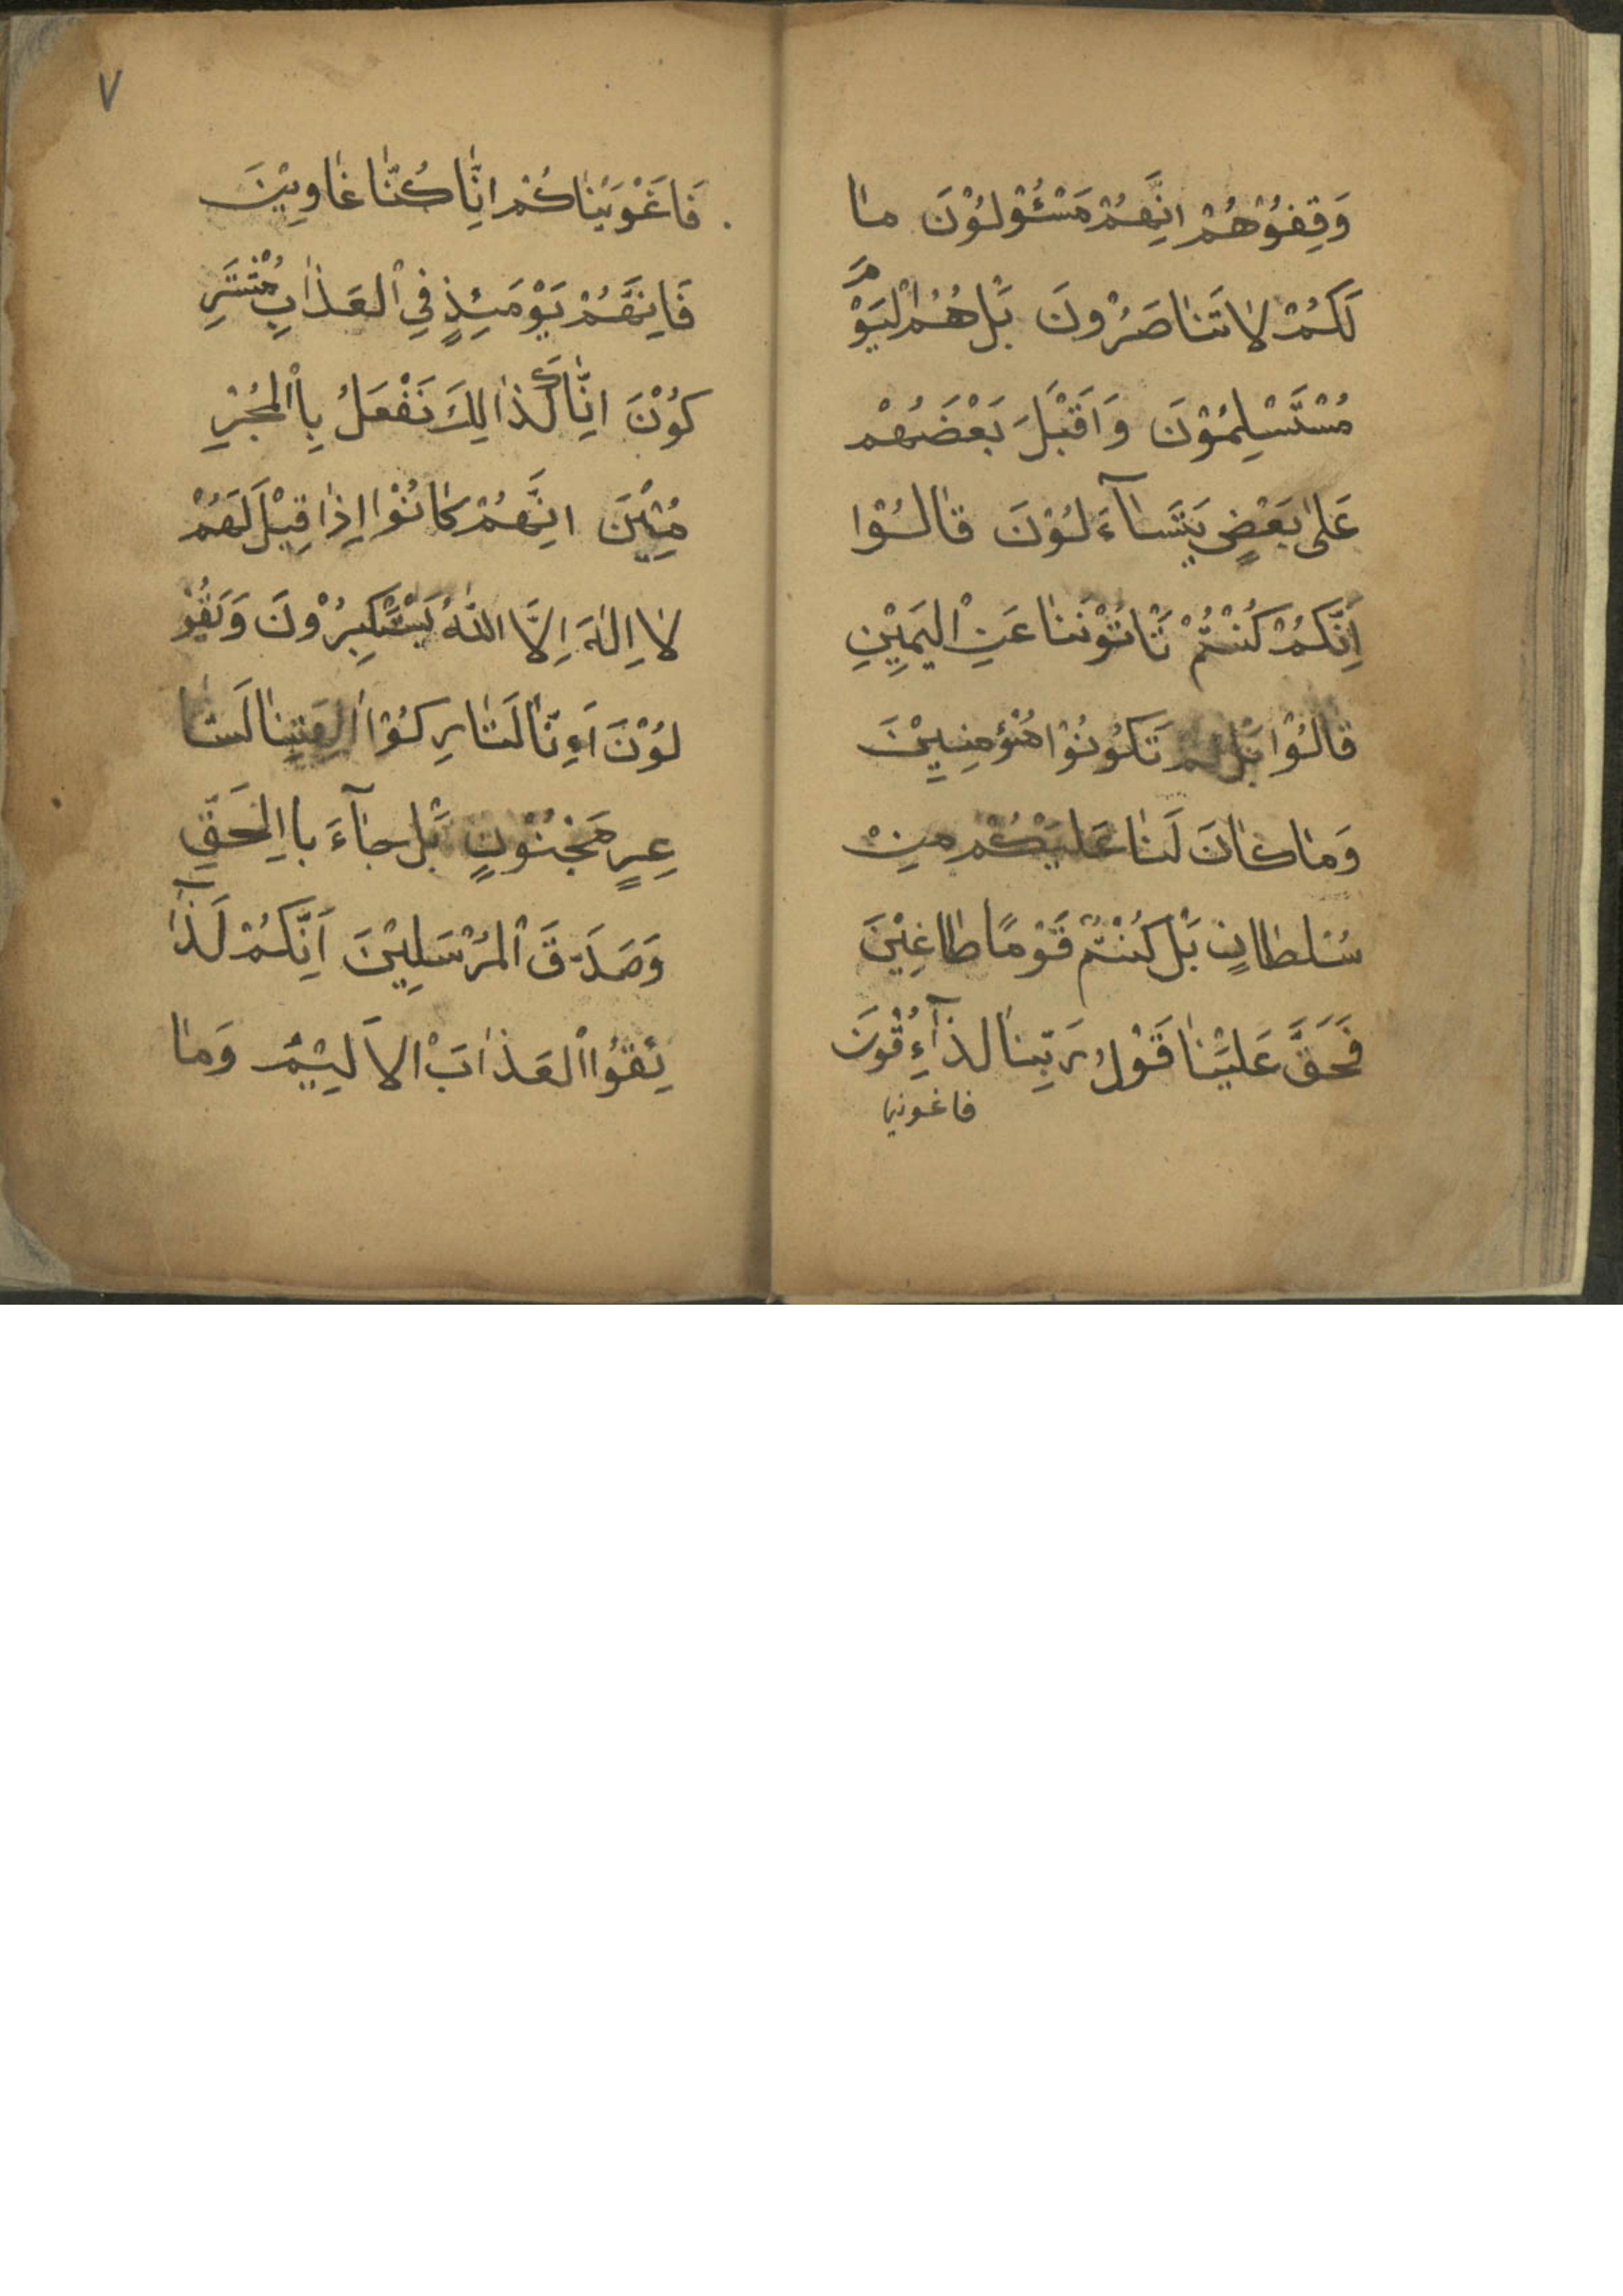 وَقِفُوْهُمْ اِنَّهُمْ مَسْئُوْلُوْنَ مٰا
لَكُمْ لاٰ تَنٰاصَرُوْنَ بَلْ هُمُ الْيَوْمَ
مُسْتَسْلِمُوْنَ وَاَقْبَلَ بَعْضَهُمْ
عَلىٰ بَعْضٍ يَتَسٰآءَلُوْنَ قٰالُوْا
اِنَّكُمْ كُنْتُمْ تَاْتُوْنَنٰا عَنِ الْيَمِيْنِ
قٰالُوْا بَلْ لَمْ تَكُوْنُوْا مُؤْمِنِيْنَ
وَمٰا كٰانَ لَنٰا عَلَيْكُمْ مِنْ
سُلطاٰنٍ بَلْ كُنْتُمْ قَوْمًا طٰاغِيْنَ
فَحَقَّ عَلَيْنٰا قَوْلُ رَبِّنٰا لَذٰآءِقُوْنَ
فاغوينا
٧
فَاَغْوَيْنٰاكُمْ اِنّٰا كُنّٰا غٰاوِيْنَ
فَاِنَّهُمْ يَوْمَئِذٍ فِي الْعَذٰابِ مُشْتَرِ
كُوْنَ اِنّٰا كَذٰالِكَ نَفْعَلُ بِاْلمُجْرِ
مِيْنَ اِنَّهُمْ كٰانُوْا اِذٰا قِيْلَ لَهُمْ
لاٰ اِلٰهَ اِلَّا اللهُ يَسْتَكْبِرُوْنَ وَيَقُوْ
لُوْنَ اَءِنّٰا لَتٰارِكُوْا اٰلِهَتِنٰا لَشٰا
عِرٍ مَجْنُوْنٍ بَلْ جٰآءَ باِالْحَقِّ
وَصَدَّقَ الْمُرْسَلِيْنَ اِنَّكُمْ لَذٰآ
ئِقُوْا الْعَذٰابَ الْاَلِيْمَ وَمٰا